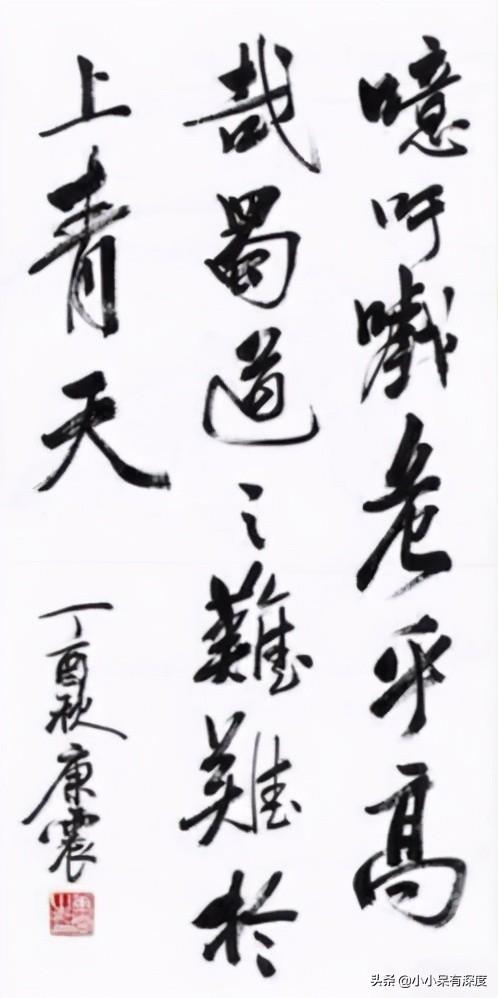 噫吁嚱危乎高
哉蜀道之難難於
上青天
丁酉秋康震
头条 @小小呆有深度